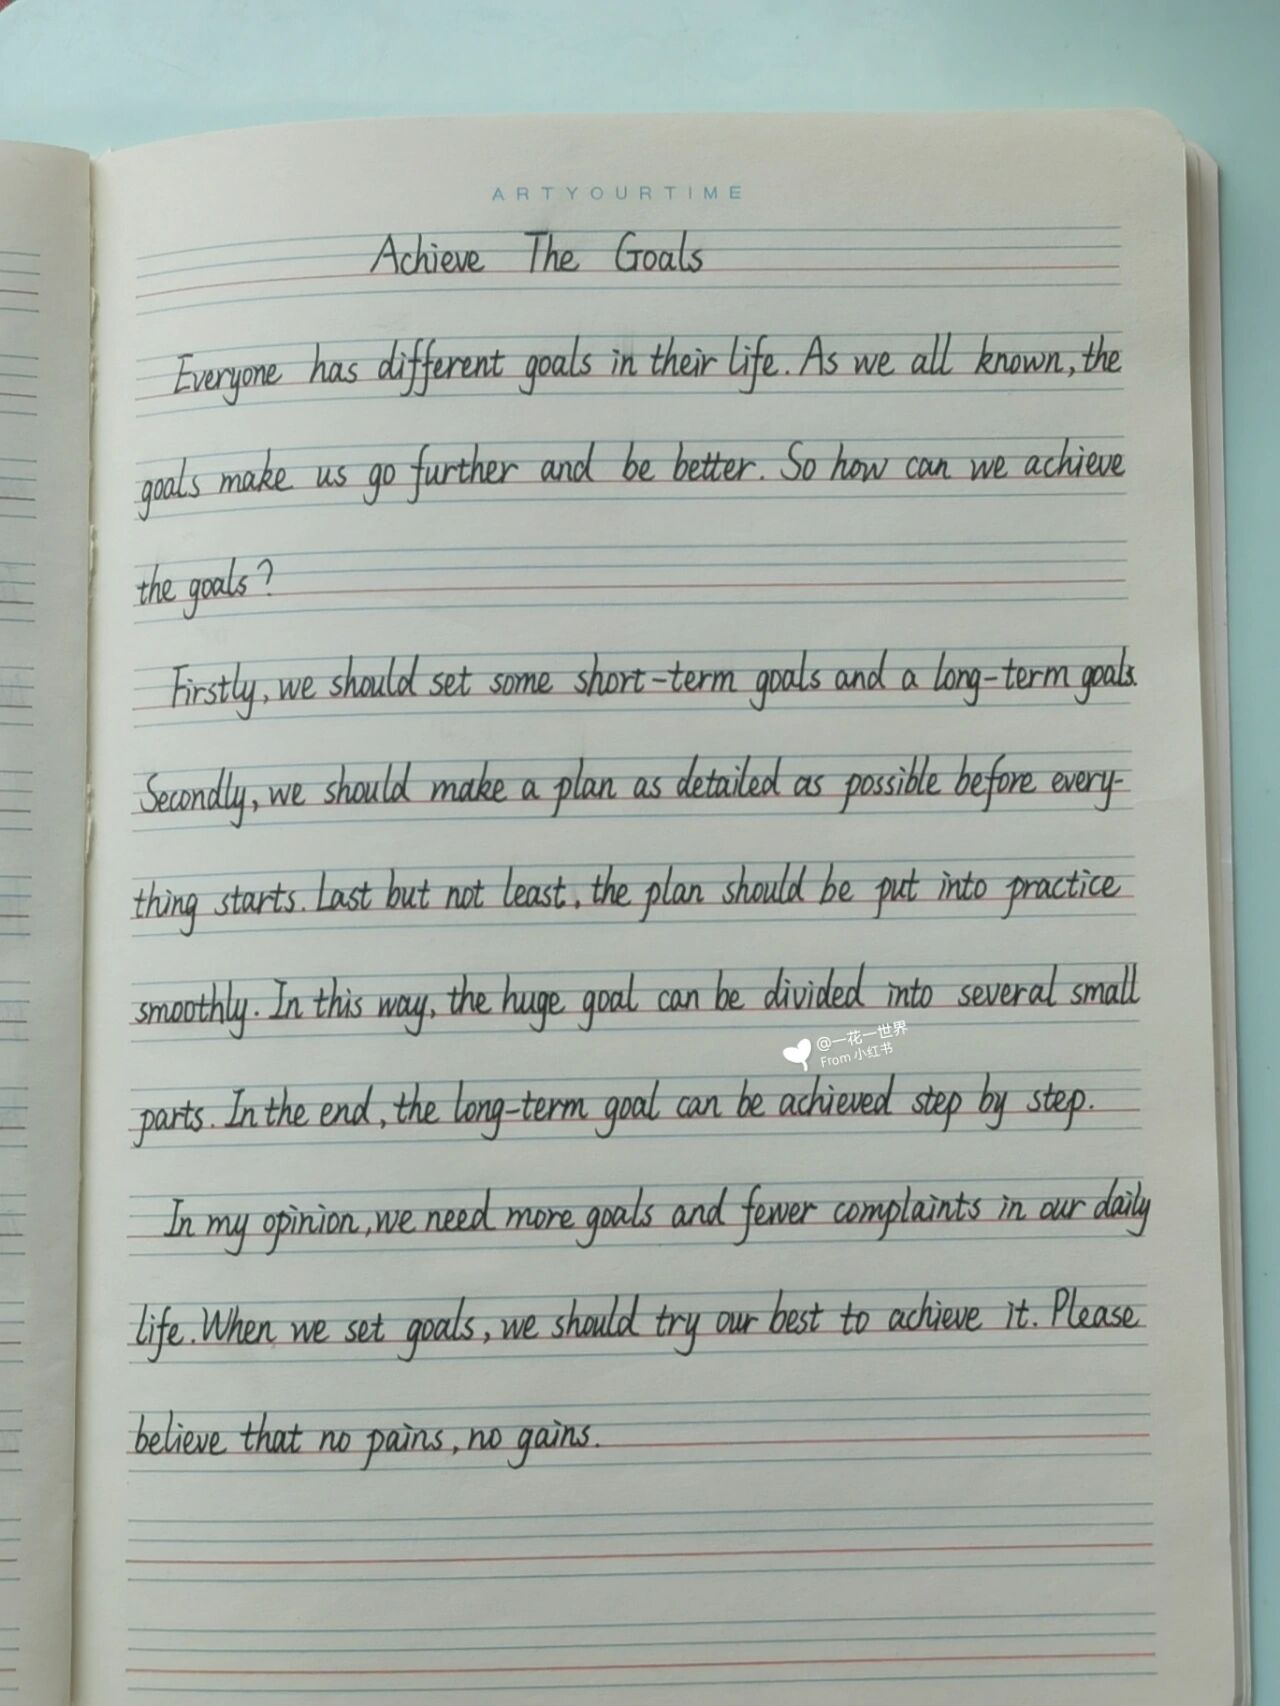 ARTYOURTIME
Achieve The Goals
Everyone has different goals in their life. As we all known, the
goals make us go further and be better. So how can we achieve
the goals?
Firstly, we should set some short-term goals and a long-term goals.
Secondly, we should make a plan as detailed as possible before every-
thing starts. Last but not least, the plan should be put into practice
smoothly. In this way, the huge goal can be divided into several small
@一花一世界
From 小红书
parts. In the end, the long-term goal can be achieved step by step.
In my opinion, we need more goals and fewer complaints in our daily
life. When we set goals, we should try our best to achieve it. Please
believe that no pains, no gains.